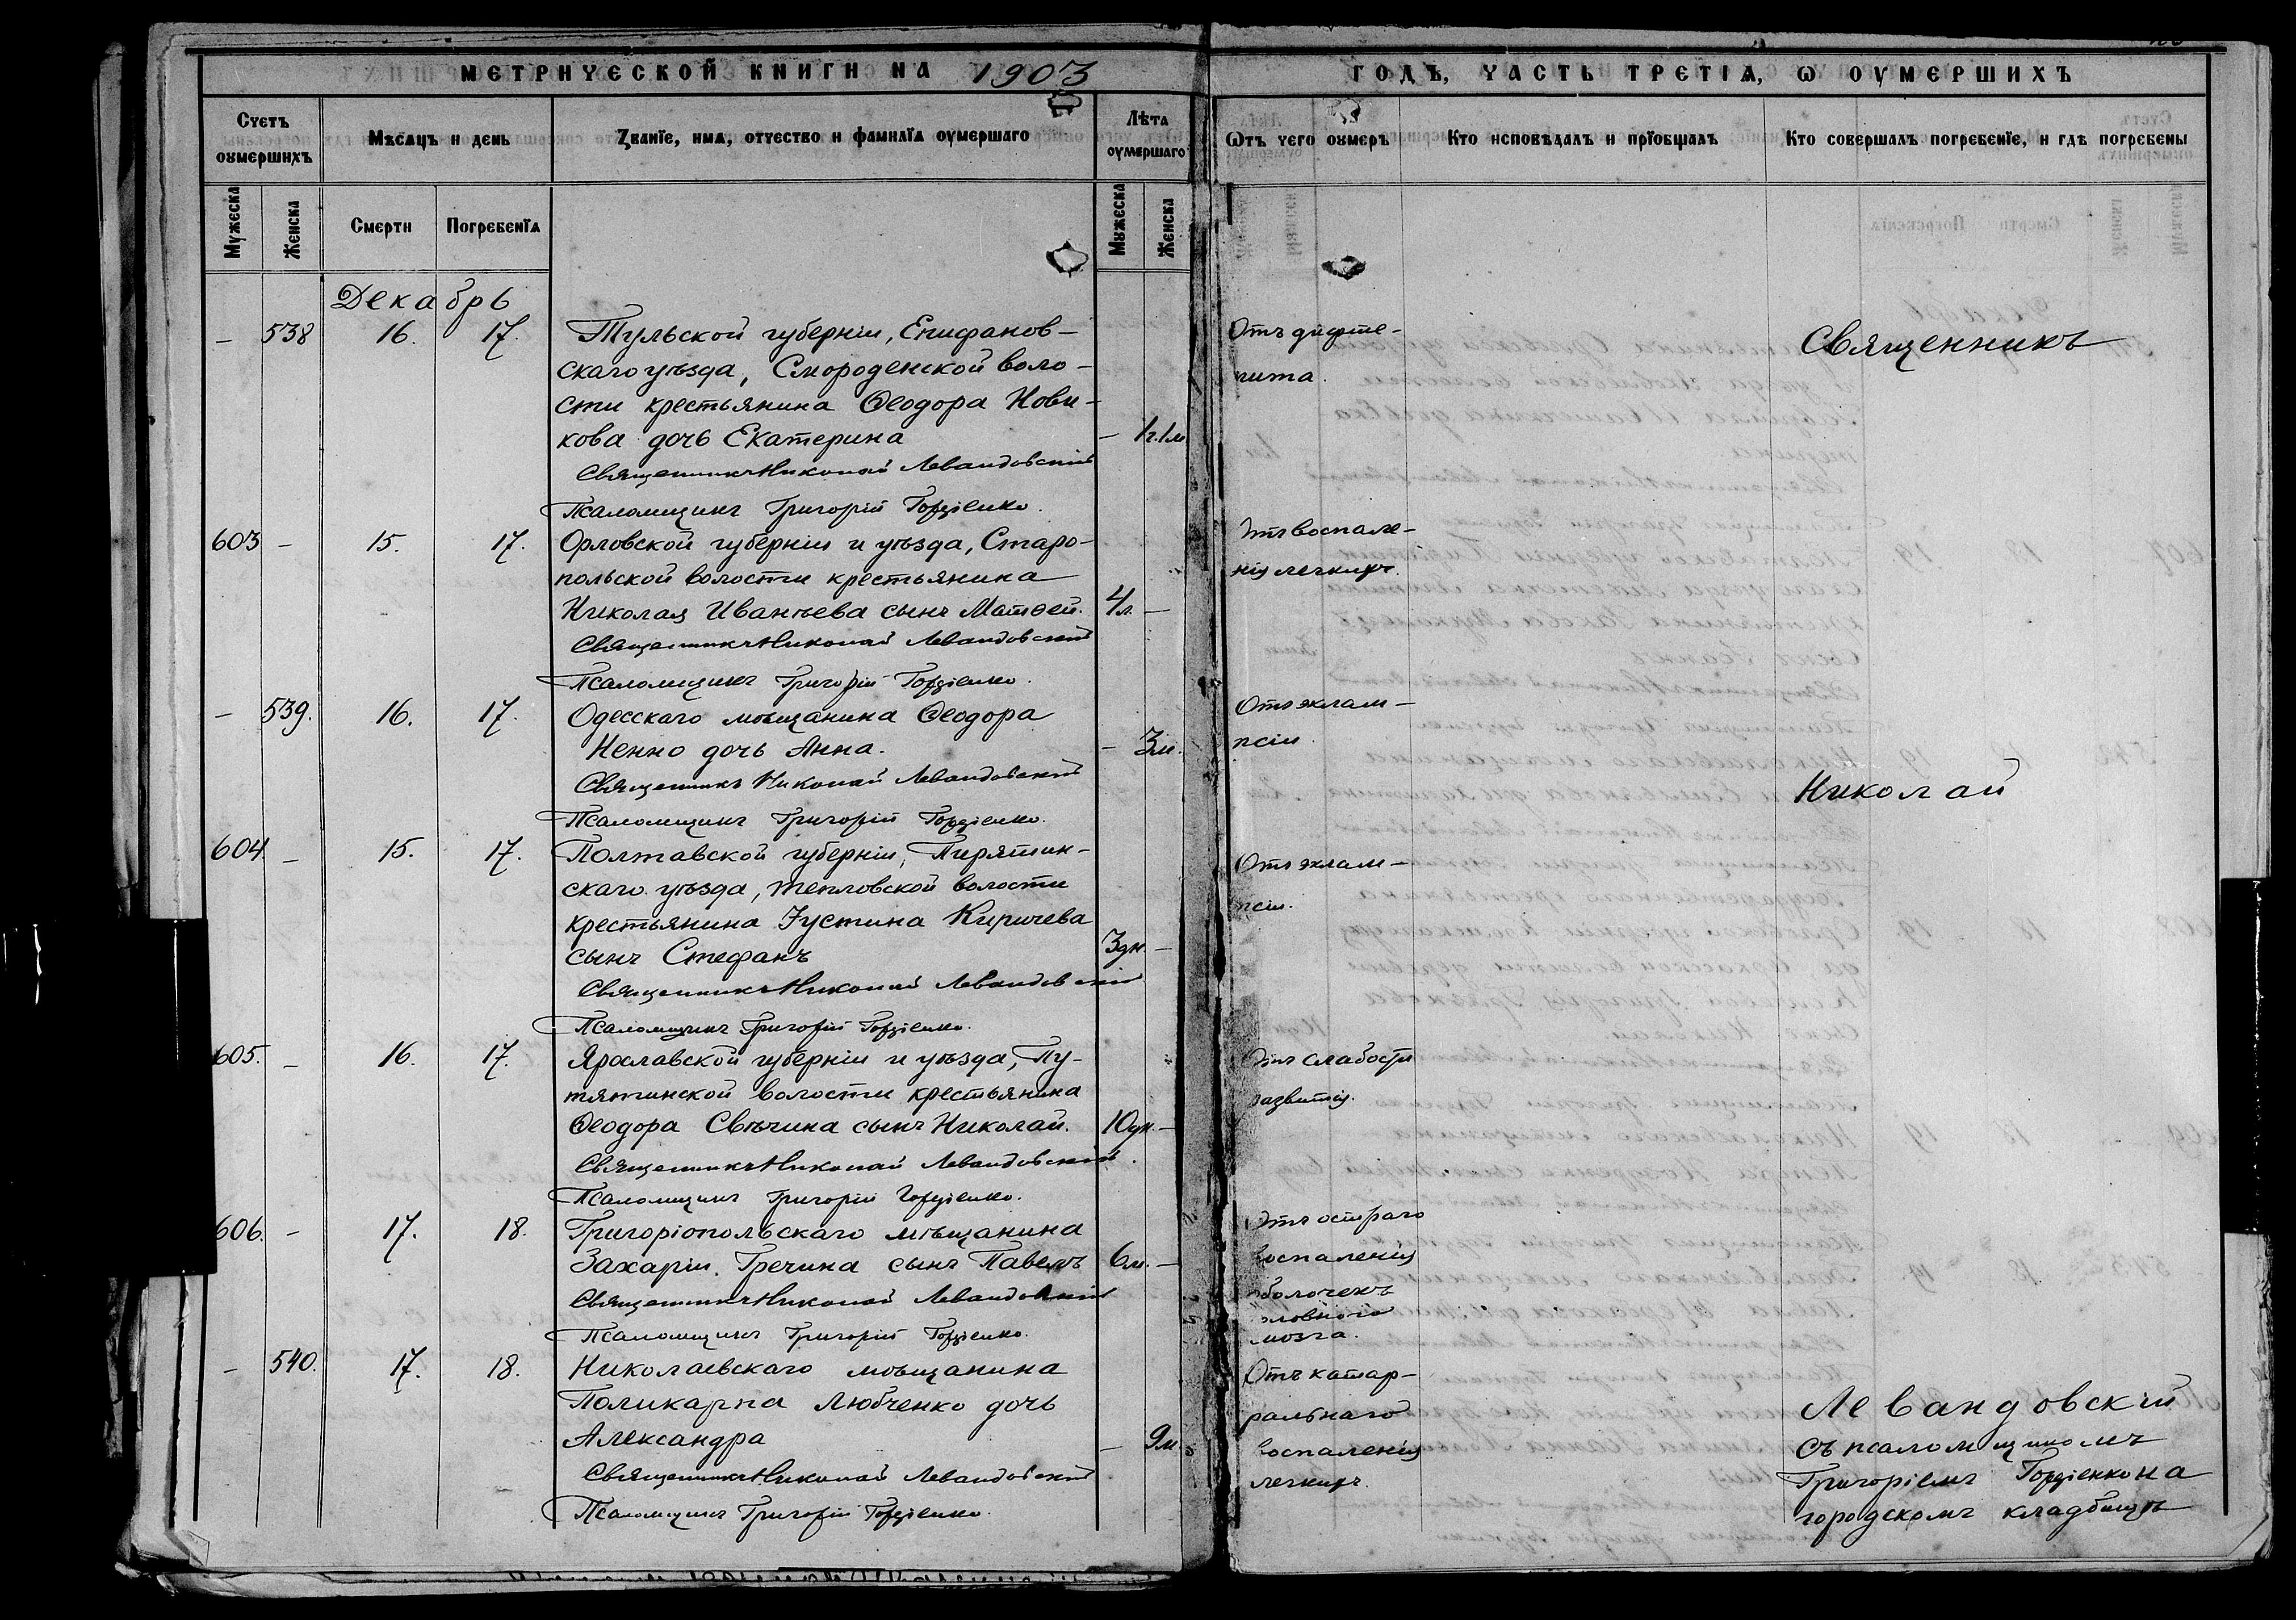 МЕТРИЧЕСКОЙ КНИГИ НА 1903
ГОДЪ, ЧАСТЬ ТРЕТІѦ, Ѡ ОУМЕРШИХЪ
Счетъ оумершихъ
Мѣсѧцъ и день
Званїе, имѧ, отчество и фамилїѧ оумершаго
Лѣта оумершаго
Ѿтъ чего оумеръ
Кто исповѣдалъ и прїобщалъ
Кто совершалъ погребенїе, и гдѣ погребены
Мужеска
Женска
Смерти
Погребенїѧ
Мужеска
Женска
Декабрь
– 538 16. 17. Тульской губерніи, Епифанов-
скаго уѣзда, Смороденской воло-
сти крестьянина Ѳеодора Нови-
кова дочь Екатерина – 1г.1м
Священникъ Николай Левандовскій
Псаломщикъ Григорій Гордіенко.
Отъ дифте-
рита.
603 – 15. 17. Орловской губерніи и уѣзда, Старо-
польской волости крестьянина
Николая Ивантьева сынъ Матѳей. 4л. –
Священникъ Николай Левандовскій
Псаломщикъ Григорій Гордіенко.
Отъ воспале-
нія легкихъ.
– 539. 16. 17. Одесскаго мѣщанина Ѳеодора
Ненно дочь Анна. – 3м.
Священникъ Николай Левандовскій
Псаломщикъ Григорій Гордіенко.
Отъ эклам-
псіи.
604 – 15. 17. Полтавской губерніи, Пирятин-
скаго уѣзда, Тепловской волости
крестьянина Іустина Киричева
сынъ Стефанъ 3дн. –
Священникъ Николай Левандовскій
Псаломщикъ Григорій Гордіенко.
Отъ эклам-
псіи.
605. – 16. 17. Ярославской губерніи и уѣзда, Пу-
тятинской волости крестьянина
Ѳеодора Свѣчина сынъ Николай. 10дн. –
Священникъ Николай Левандовскій.
Псаломщикъ Григорій Гордіенко.
Отъ слабости
развитія.
606. – 17. 18. Григоріопольскаго мѣщанина
Захаріи Гречина сынъ Павелъ 6м. –
Священникъ Николай Левандовскій
Псаломщикъ Григорій Гордіенко.
Отъ остраго
воспаленія
оболочекъ
головного
мозга.
– 540. 17. 18. Николаевскаго мѣщанина
Поликарпа Любченко дочь
Александра – 9м.
Священникъ Николай Левандовскій
Псаломщикъ Григорій Гордіенко.
Отъ катар-
ральнаго
воспаленія
легкихъ.
Священникъ
Николай
Левандовскій
съ псаломщикомъ
Григоріемъ Гордіенко на
городскомъ кладбищѣ